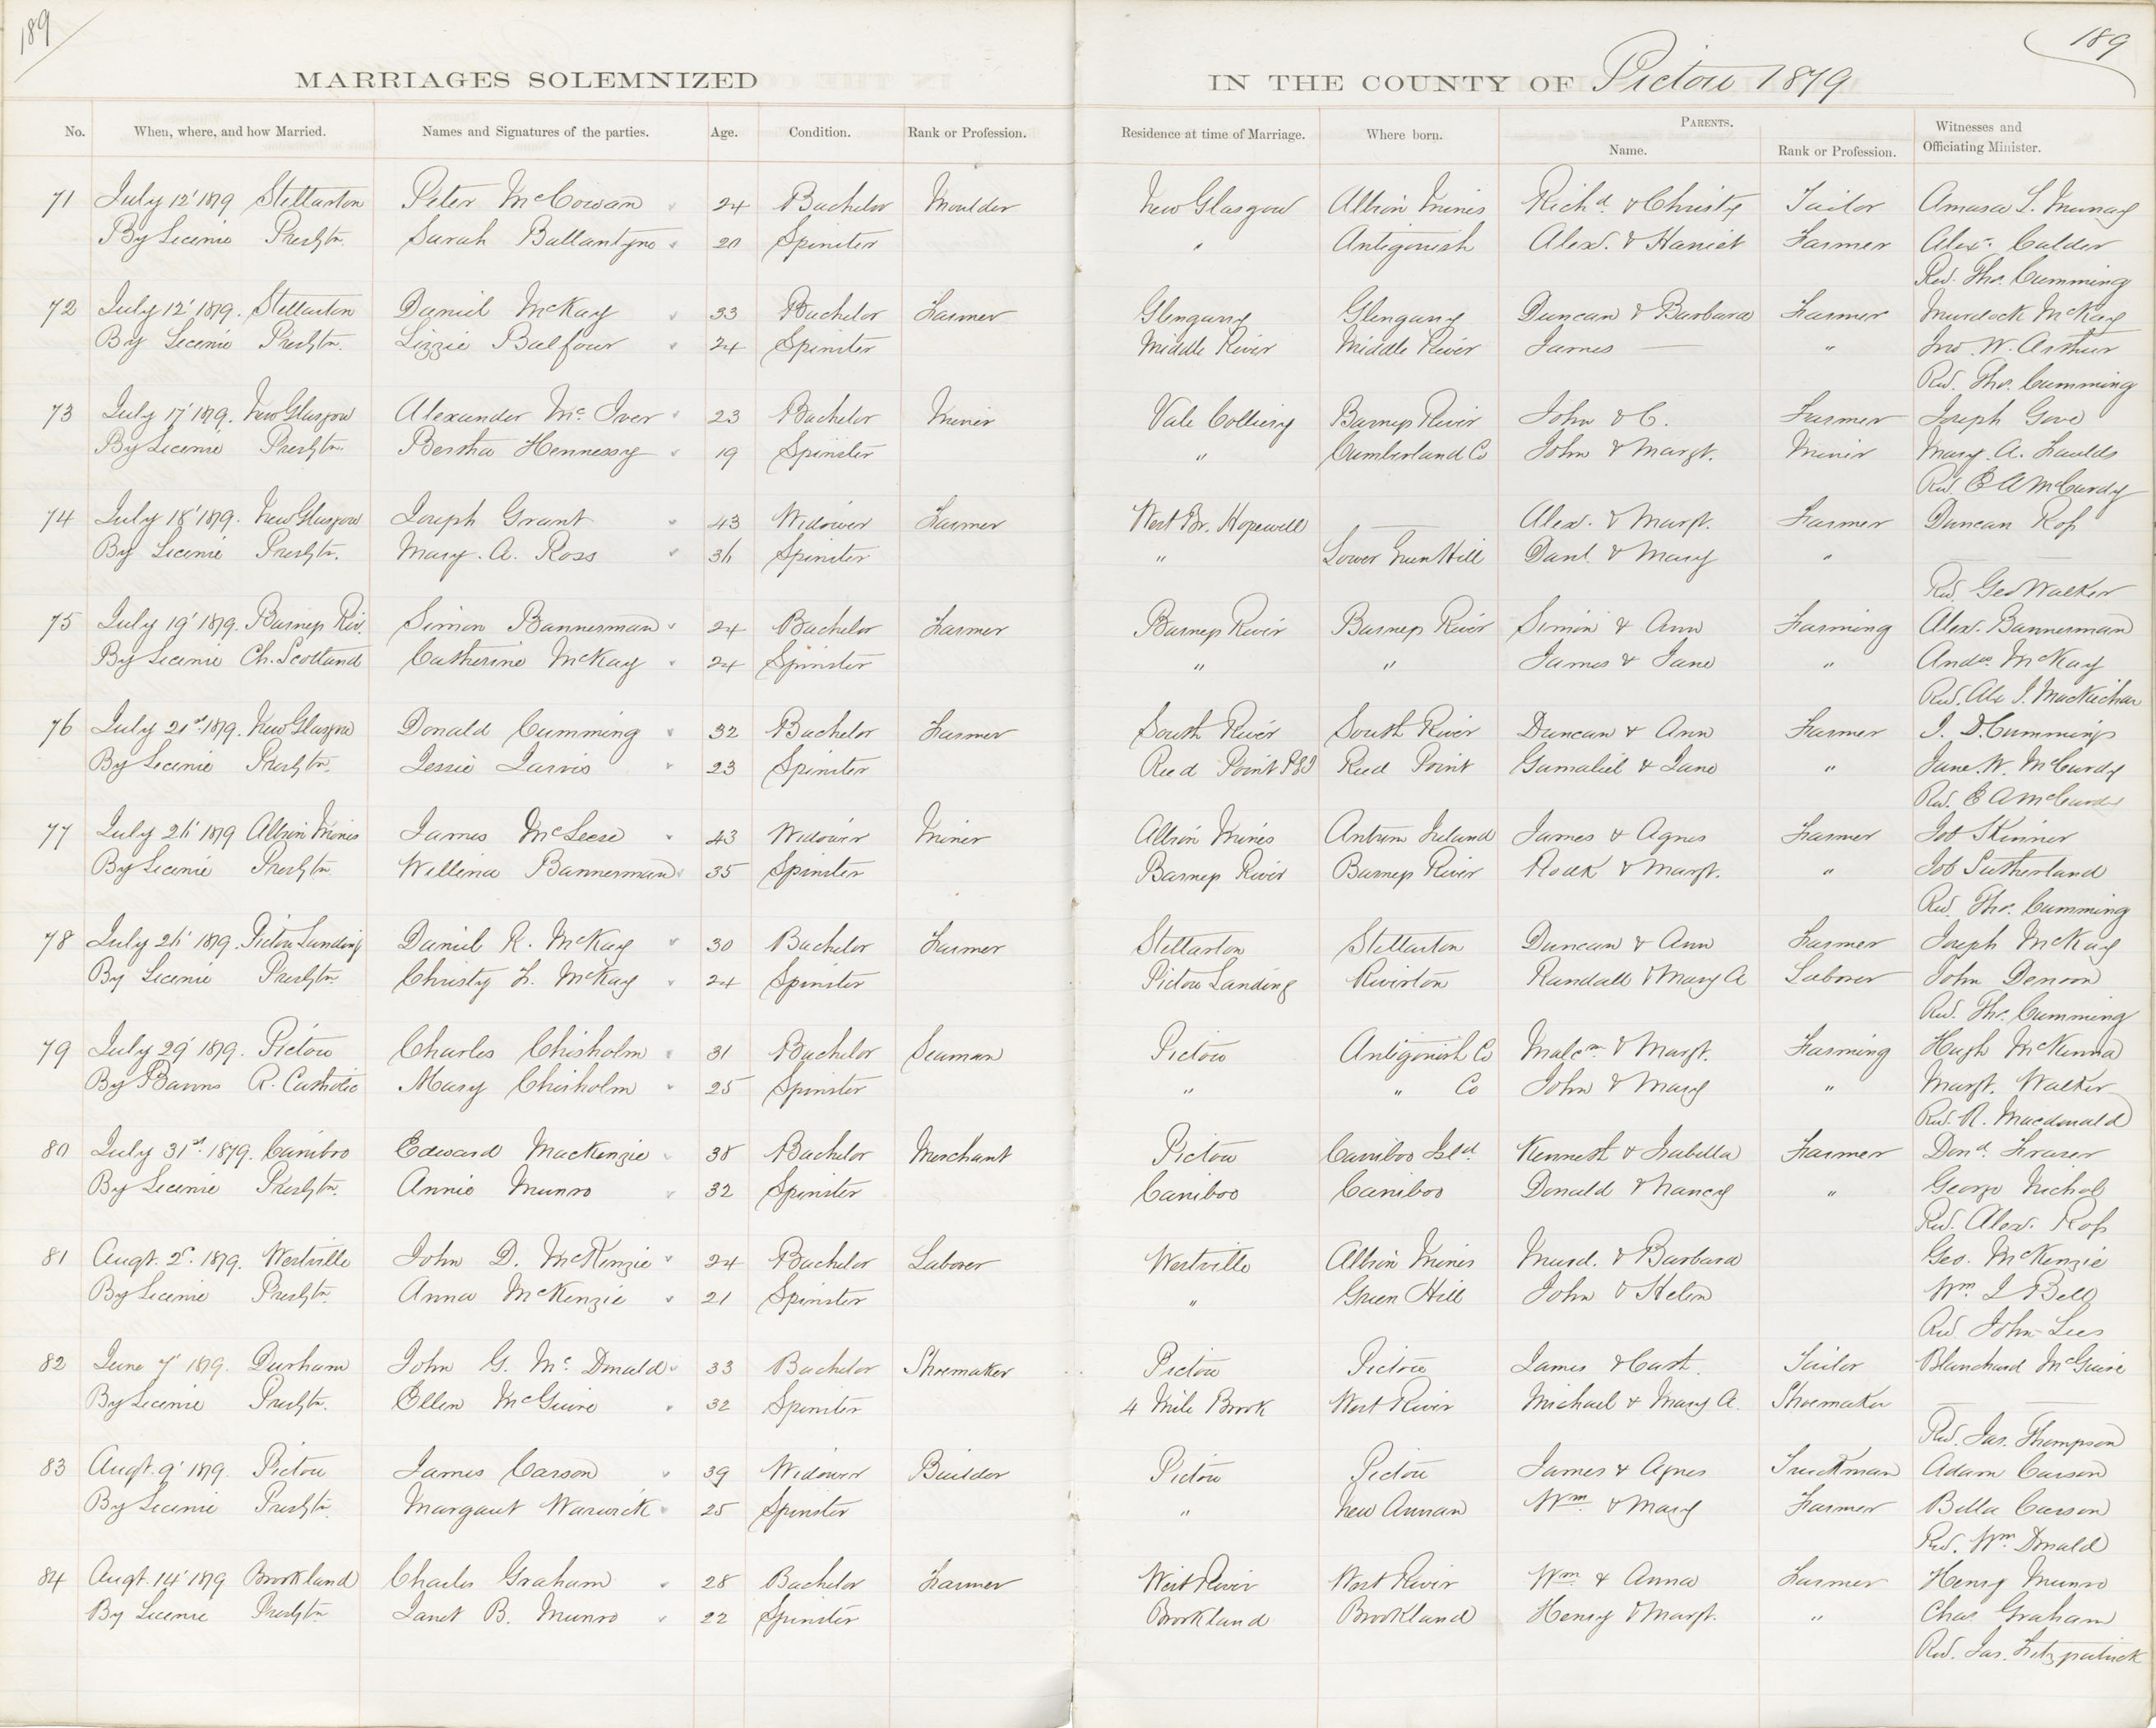 189 189
MARRIAGES SOLEMNIZED IN THE COUNTY OF Pictou 1879
No. When, where, and how Married. Names and Signatures of the parties. Age. Condition. Rank or Profession. Residence at time of Marriage. Where born. PARENTS. Name. Rank or Profession. Witnesses and Officiating Minister.
71 July 12' 1879 Stellarton Peter McCowan 24 Bachelor Moulder New Glasgow Albion Mines Richd. & Christy Tailor Amasa L. Murray
By Licenie Presbytn. Sarah Ballantyne 20 Spinster " Antigonish Alex. & Harriet Farmer Alexr. Calder
Rev. Thos. Cumming
72 July 12' 1879. Stellarton Daniel McKay 33 Bachelor Farmer Glengarry Glengarry Duncan & Barbara Farmer Murdock McKay
By Licenie Presbytn. Lizzie Balfour 24 Spinster Middle River Middle River James — " Jno. W. Arthur
Rev. Thos. Cumming
73 July 17' 1879. New Glasgow Alexander Mc. Iver 23 Bachelor Miner Vale Colliery Barneys River John & C. Farmer Joseph Gove
By Licenie Presbytn. Bertha Hennessy 19 Spinster " Cumberland Co John & Margt. Miner Mary. A. Faulds
Rev. E A McCurdy
74 July 18' 1879. New Glasgow Joseph Grant 43 Widower Farmer West Br. Hopewell — Alex. & Margt. Farmer Duncan Ross
By Licenie Presbytn. Mary. A. Ross 36 Spinster " Lower Green Hill Danl. & Mary "
Rev. Geo Walker
75 July 19' 1879. Barneys Riv. Simon Bannerman 24 Bachelor Farmer Barneys River Barneys River Simon & Ann Farming Alex. Bannerman
By Licenie Ch. Scotland Catherine McKay 24 Spinster " " James & Jane " Andw. McKay
Rev. Alex J. MacKichan
76 July 21st 1879. New Glasgow Donald Cumming 32 Bachelor Farmer South River South River Duncan & Ann Farmer J. D. Cummings
By Licenie Presbytn. Jessie Jarvis 23 Spinster Reed Point PEI Reed Point Gamaliel & Jane " Jane. W. McCurdy
Rev. E A McCurdy
77 July 26' 1879 Albion Mines James McLeese 43 Widower Miner Albion Mines Antrim Ireland James & Agnes Farmer Job Skinner
By Licenie Presbytn. Willina Bannerman 35 Spinster Barneys River Barneys River Rodk & Margt. " Job Sutherland
Rev. Thos. Cumming
78 July 26' 1879. Pictou Landing Daniel R. McKay 30 Bachelor Farmer Stellarton Stellarton Duncan & Ann Farmer Joseph McKay
By Licenie Presbytn. Christy F. McKay 24 Spinster Pictou Landing Riverton Randall & Mary A Laborer John Denoon
Rev. Thos. Cumming
79 July 29' 1879. Pictou Charles Chisholm 31 Bachelor Seaman Pictou Antigonish Co Malcm & Margt. Farming Hugh McKenna
By Banns R. Catholic Mary Chisholm 25 Spinster " " Co John & Mary " Margt. Walker
Rev. R. Macdonald
80 July 31st 1879. Cariboo Edward MacKenzie 38 Bachelor Merchant Pictou Cariboo Isld Kenneth & Isabella Farmer Dond. Fraser
By Licenie Presbytn. Annie Munro 32 Spinster Cariboo Cariboo Donald & Nancy " George Nichol
Rev. Alex. Ross
81 Augt. 2d. 1879. Westville John D. McKenzie 24 Bachelor Laborer Westville Albion Mines Murd. & Barbara Geo. McKenzie
By Licenie Presbytn. Anna McKenzie 21 Spinster " Green Hill John & Helen Wm. J. Bell
Rev. John Lees
82 June 7' 1879. Durham John G. Mc. Donald 33 Bachelor Shoemaker Pictou Pictou James & Cath. Tailor Blanchard McGuire
By Licenie Presbytn. Ellen McGuire 32 Spinster 4 Mile Brook West River Michael & Mary A. Shoemaker —
Rev. Jas. Thompson
83 Augt. 9' 1879. Pictou James Carson 39 Widower Builder Pictou Pictou James & Agnes Truckman Adam Carson
By Licenie Presbytn. Margaret Warwick 25 Spinster " New Annan Wm & Mary Farmer Bella Carson
Rev. Wm. Donald
84 Augt. 14' 1879 Brookland Charles Graham 28 Bachelor Farmer West River West River Wm & Anna Farmer Henry Munro
By Licenie Presbytn Janet B. Munro 22 Spinster Brookland Brookland Henry & Margt. " Chas Graham
Rev. Jas. Fitzpatrick